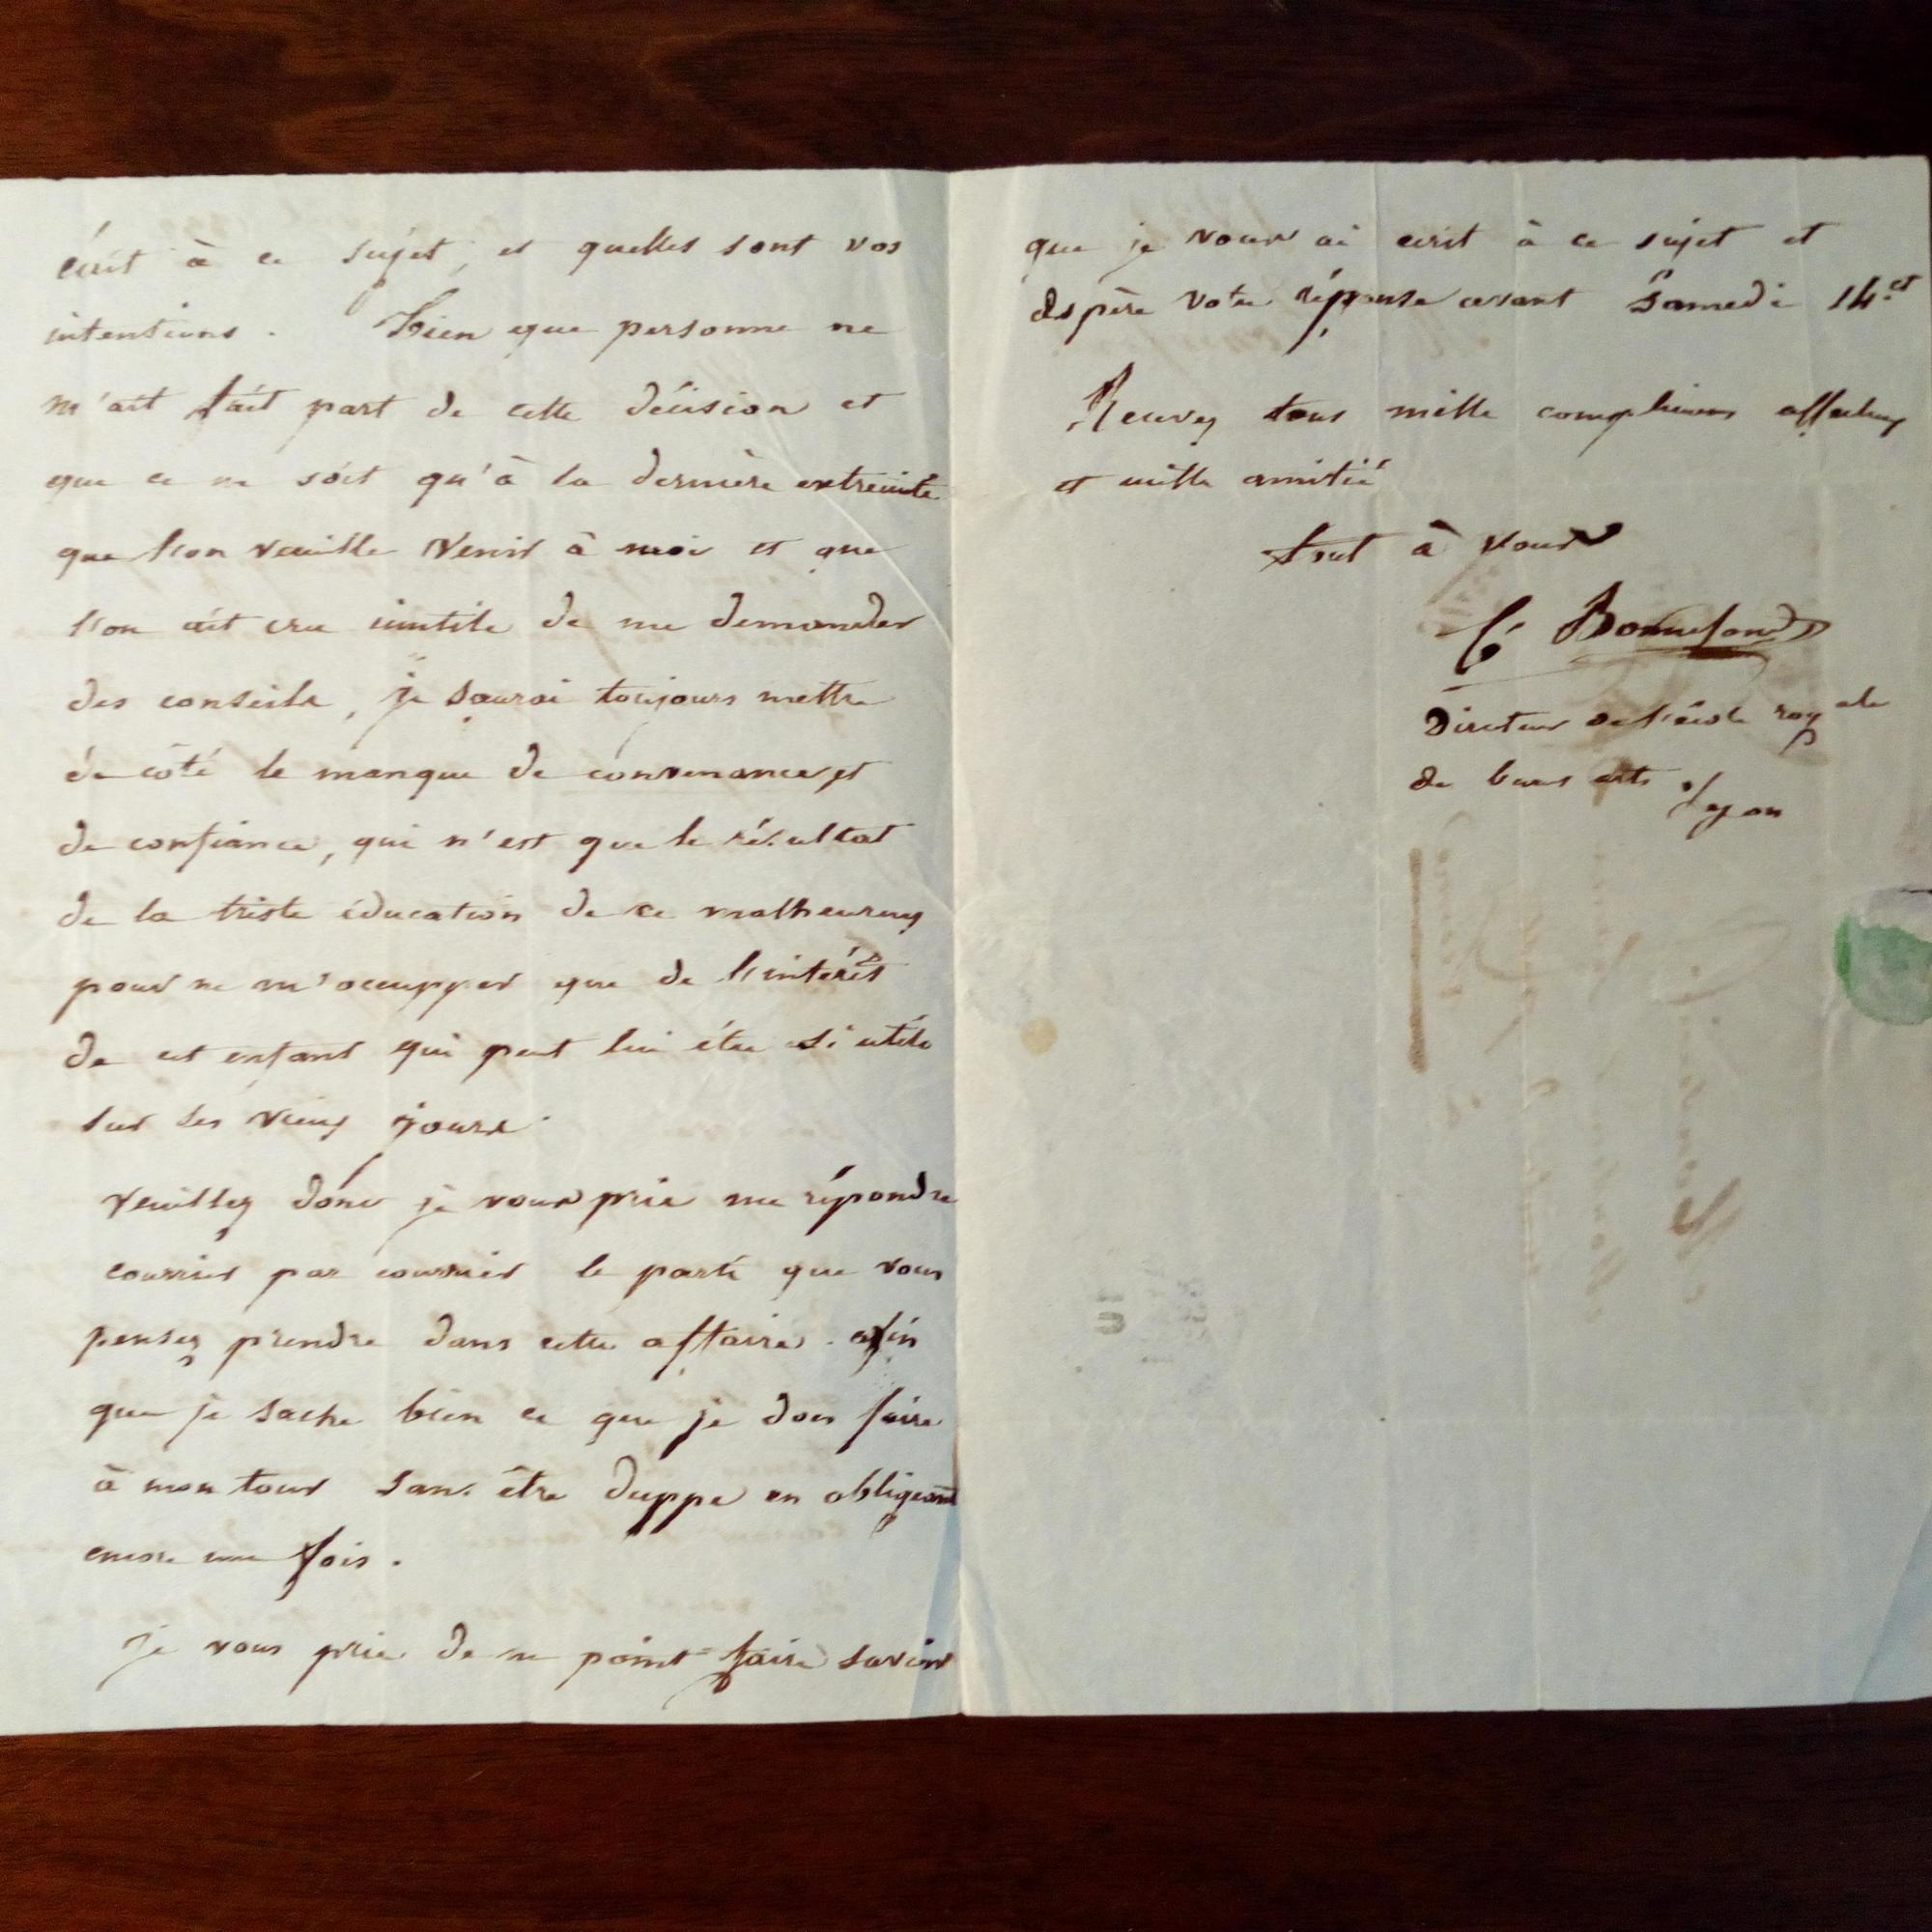 écrit à ce sujet, et quelles sont vos
intentions. Bien que personne ne
m'ait fait part de cette décision et
que ce ne soit qu'à la dernière extremité
que l'on veuille venir à moi et que
l'on ait cru inutile de me demander
des conseils, je saurai toujours mettre
de côté le manque de convenance et
de confiance, qui n'est que le résultat
de la triste éducation de ce malheureux
pour ne m'occupper que de l'intérêt
de cet enfant qui peut lui être si utile
sur ses vieux jours.
Veuillez donc je vous prie me répondre
courrier par courrier le parti que vous
pensez prendre dans cette affaire. afin
que je sache bien ce que je dois faire
à mon tour sans être duppe en obligeant
encore une fois.
je vous prie de ne point faire savoir
que je vous ai écrit à ce sujet et
espère votre réponse avant Samedi 14 ct
Recevez tous mille complimens affectueux
et mille amitié
tout à vous
C. Bonnefond
Directeur de l'école royale
de beaux arts
Lyon